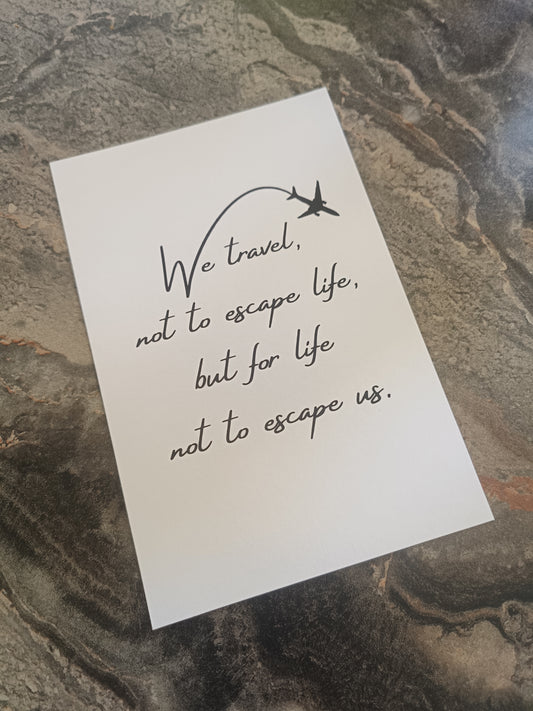 We travel,
not to escape life,
but for life
not to escape us.